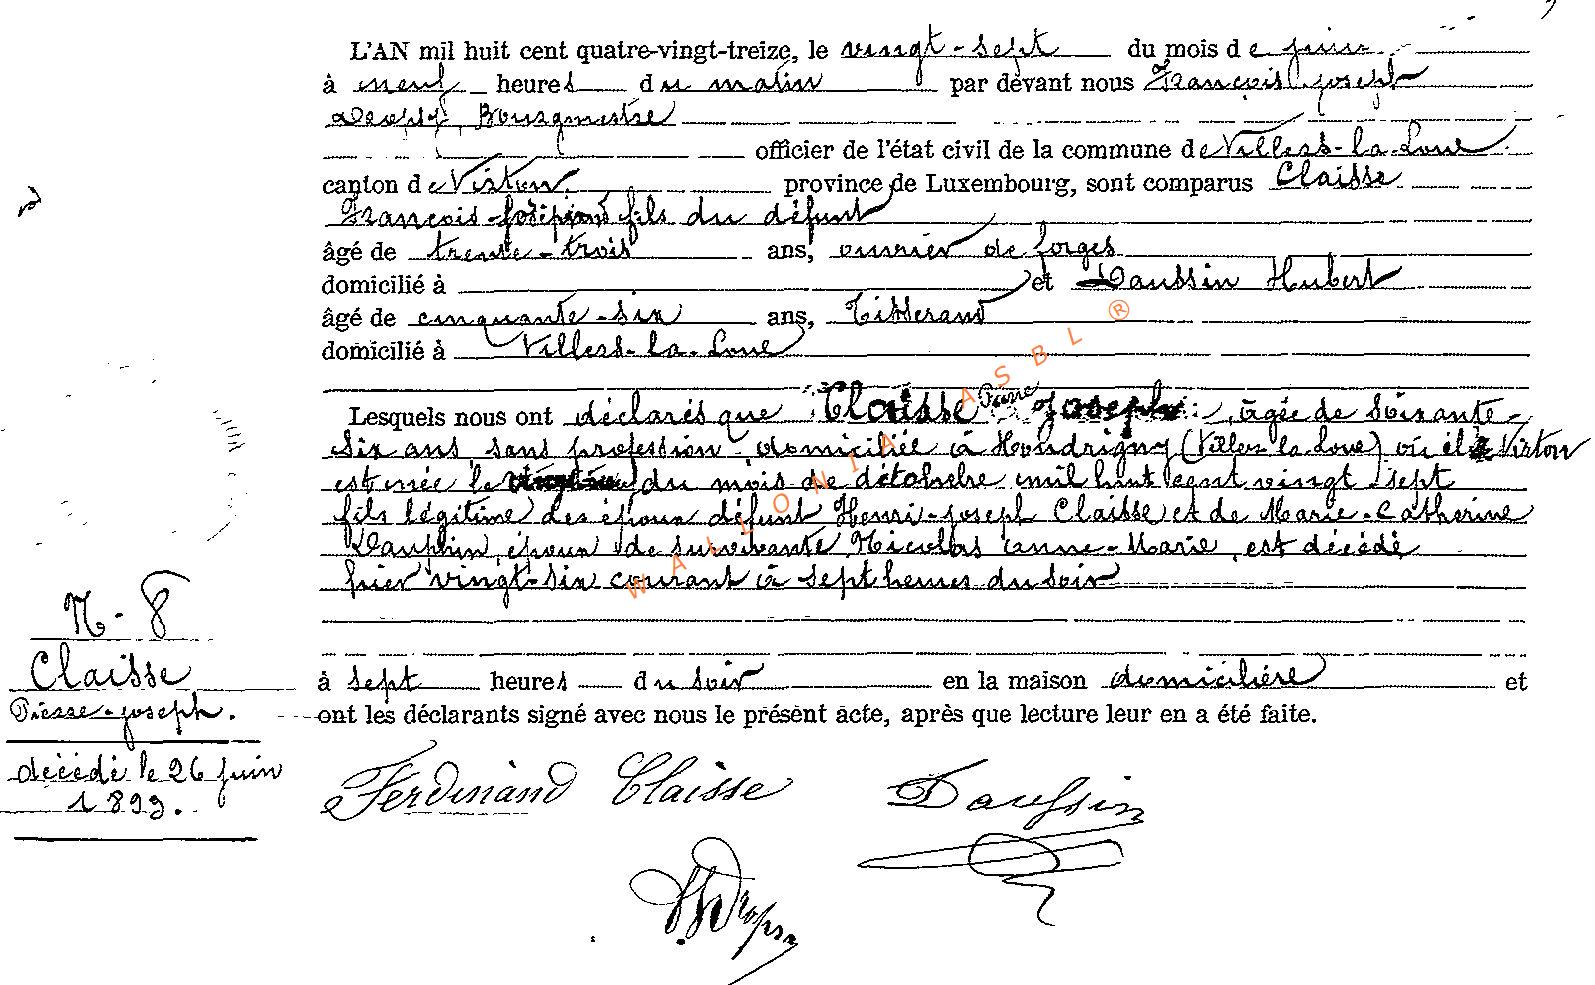 L'AN mil huit cent quatre-vingt-treize, le vingt-sept du mois de juin
à neuf heures du matin par devant nous François joseph
Bourgmestre
officier de l'état civil de la commune de Villers-la-Loue
canton de Virton. province de Luxembourg, sont comparus Claisse
François fils du défunt
âgé de trente-trois ans, ouvrier de forges
domicilié à et Daussin Hubert
âgé de cinquante-six ans, Tisserand
domicilié à Villers-la-Loue
Lesquels nous ont déclarés que Claisse Pierre Joseph, âgée de soixante-
six ans, sans profession, domiciliée à Houdrigny (Villers la Loue) où il Virton
est née le du mois de mil huit cent vingt-sept
fils légitime des époux défunt Henri-joseph Claisse et de Marie-Catherine
époux de survivante Nicolas anne-Marie, est décédé
hier vingt-six courant à sept heures du soir
N-8
Claisse
Pierre-joseph.
décédé le 26 juin
1893.
à sept heures du soir en la maison domicilière et
ont les déclarants signé avec nous le présent acte, après que lecture leur en a été faite.
Ferdinand Claisse Daussin
WALLONIA ASBL ®